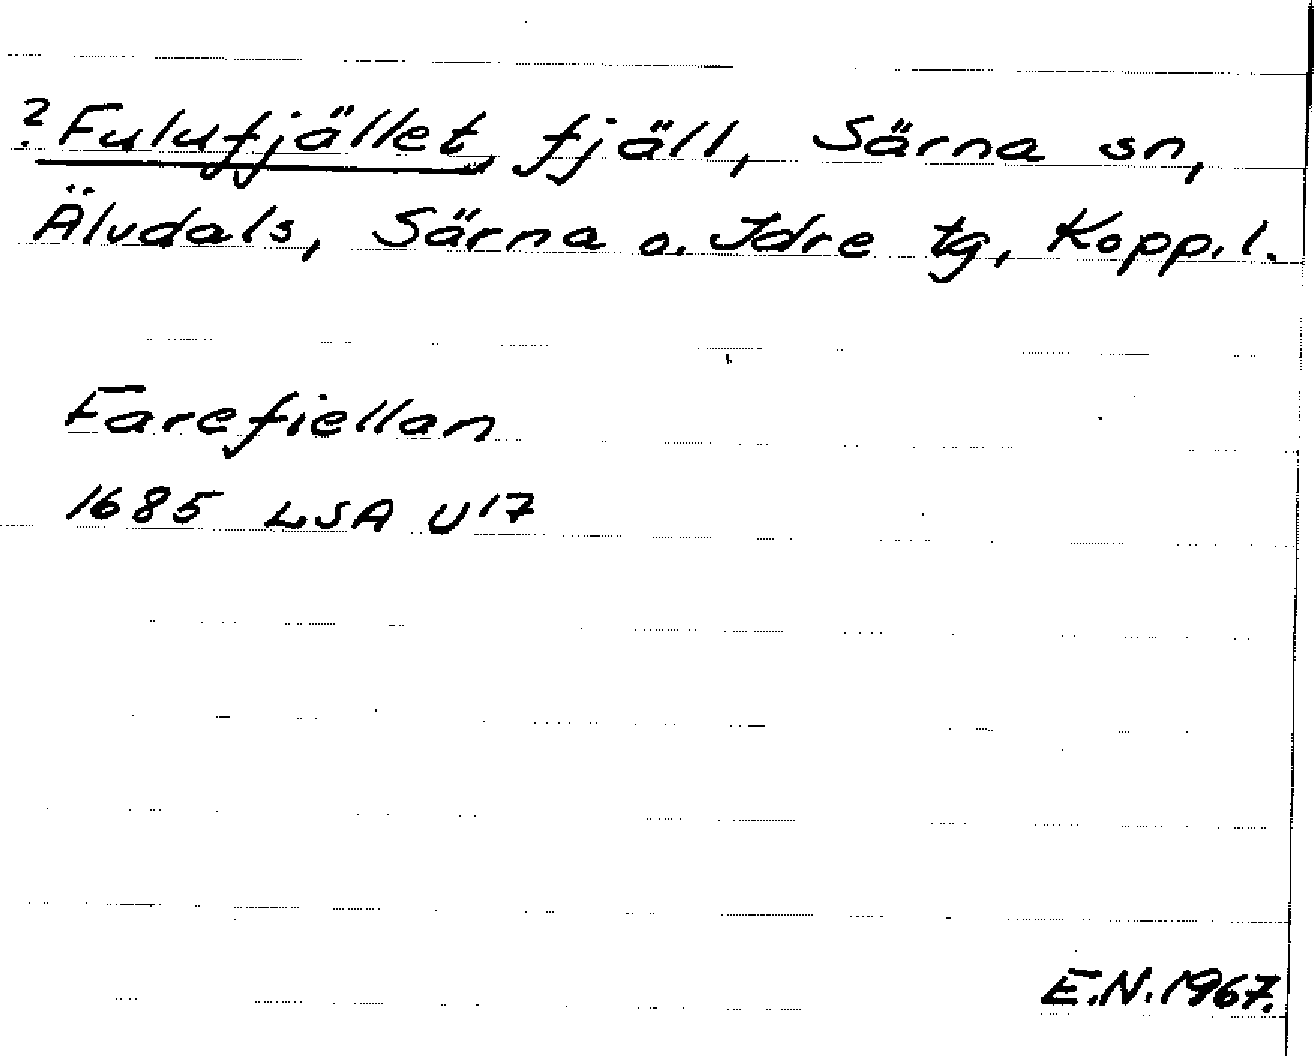 ? Fulufjället, fjäll, Särna sn,
Älvdals, Särna o. Idre tg, Kopp. l.
Farefiellan
1685 LSA U17
E.N. 1967.